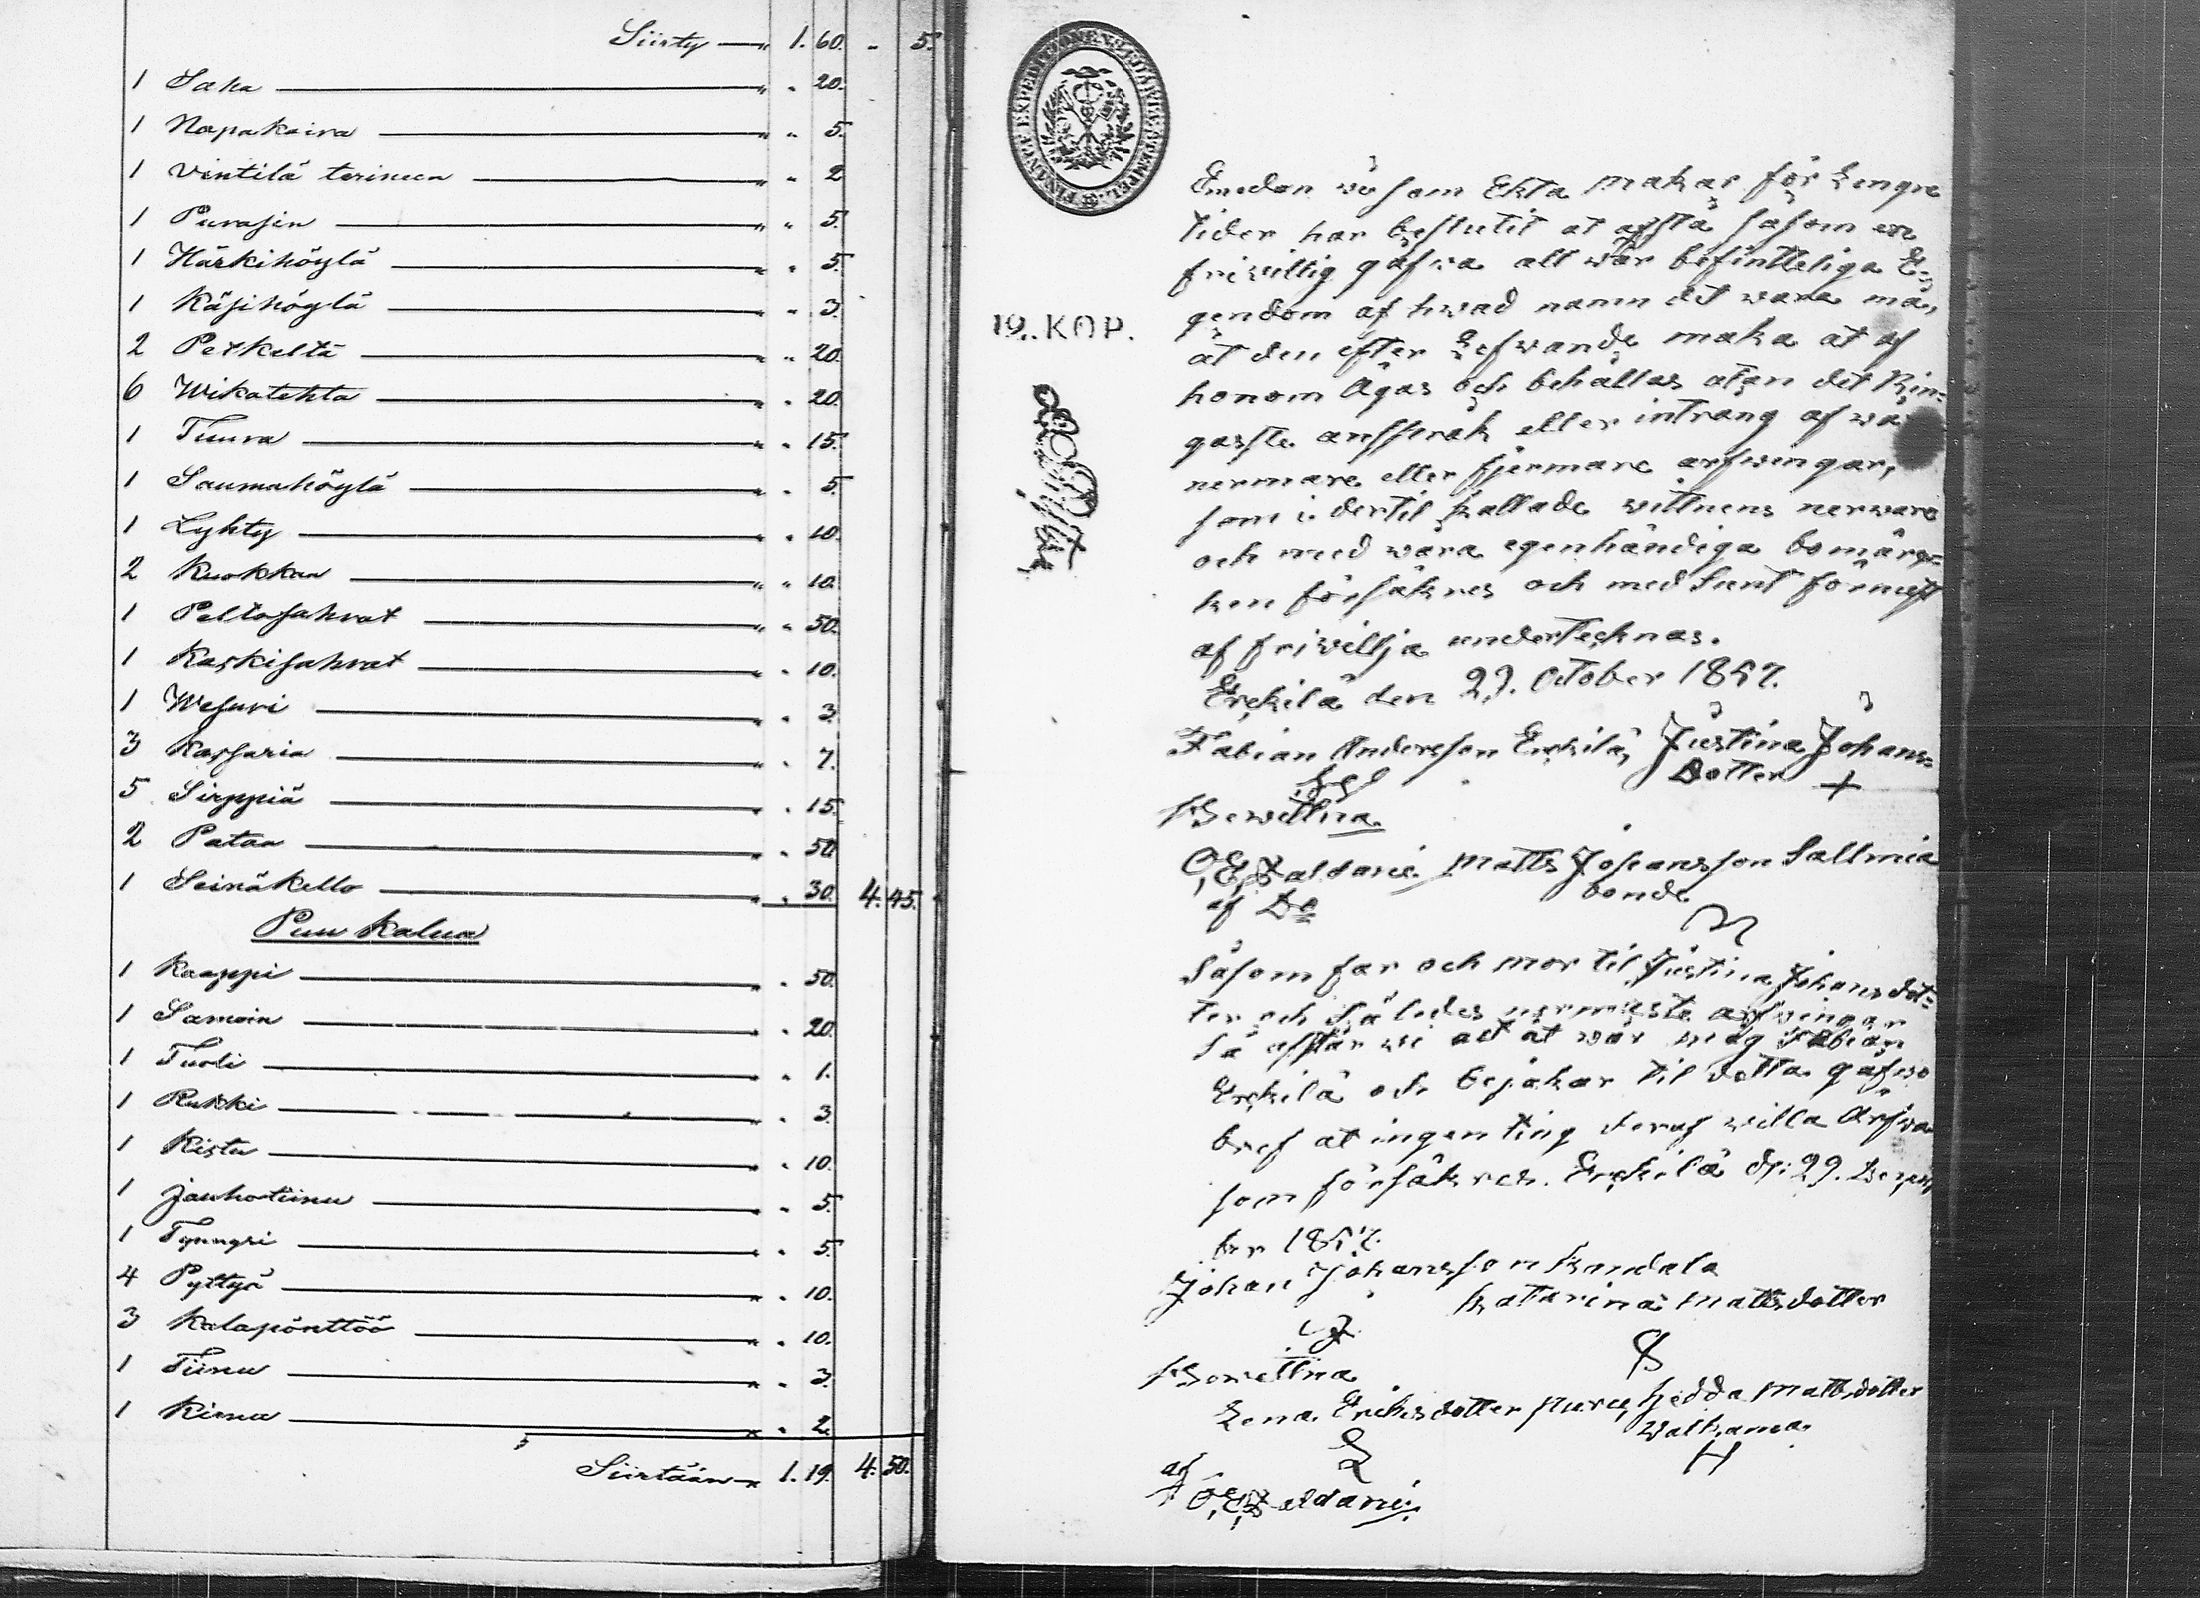 Siirty — „ 1. 60. - 5.
1 Saha — „ „ 20.
1 Napakaira — „ „ 5.
1 Vintilä terineen — „ „ 2
1 Purasin — „ „ 5.
1 Härkihöylä — „ „ 5.
1 Käsihöylä — „ „ 3.
2 Petkeltä — „ „ 20.
6 Wikatehta — „ „ 20.
1 Tuura — „ „ 15.
1 Saumahöylä — „ „ 5.
1 Lyhty — „ „ 10.
2 Kuokkaa — „ „ 10.
1 Peltosahrat — „ „ 50.
1 Kaskisahrat — „ „ 10.
1 Wesuri — „ „ 3.
3 Kassaria — „ „ 7.
5 Sirppiä — „ „ 15.
2 Pataa — „ „ 50.
1 Seinäkello — „ „ 30. 4. 45.
Puu kalua
1 Kaappi — „ „ 50.
1 Samoin — „ „ 20.
1 Tuoli — „ „ 1.
1 Rukki — „ „ 3.
1 Kistu — „ „ 10.
1 Jauhotiinu — „ „ 5.
1 Tynnyri — „ „ 5.
4 Pyttyä — „ „ 10.
3 Kalapönttöö — „ „ 10.
1 Tiinu — „ „ 3.
1 Kirnu — „ „ 2.
Siirtään — „ 1. 19. 4. 50.
19. KOP.
Emedan wi som Ekta makar för Lengre
tider har beslutit at afstå såsom en
friwillig gåfwa all wår befintteliga E-
gendom af hwad namn det wara må,
åt den efter Lefwande maka at af
honom Ägas och behållas utan det Rin-
gaste anspråk eller intrång af wå
nermare eller fjermare arfwingar,
som i dertil kallade wittnens nerwaro
och med wåra egenhändiga bomärg-
ken försäkres och med Sunt förnuft
af friwillja undertecknas.
Erckilä den 29. October 1857.
Fabian Andersson Erckilä, Justina Johans-
Dotter +
Bewittna
Matts Johansson Sallmia
af Do bonde
Såsom far och mor til Justina Johansdot-
ter och således nermaste arfwingar
Så afstår wi alt åt wår måg Fabian
Erckilä och bejakar til detta gåfwo
bref at ingenting deraf willa Ärfwa
som försäkres. Erckilä d: 29.
ber 1857.
Johan Johansson Kandala
Katarina Mattsdotter
Bewittna
Lena Ericksdotter Hedda Mattsdotter
Walkama
L H
af